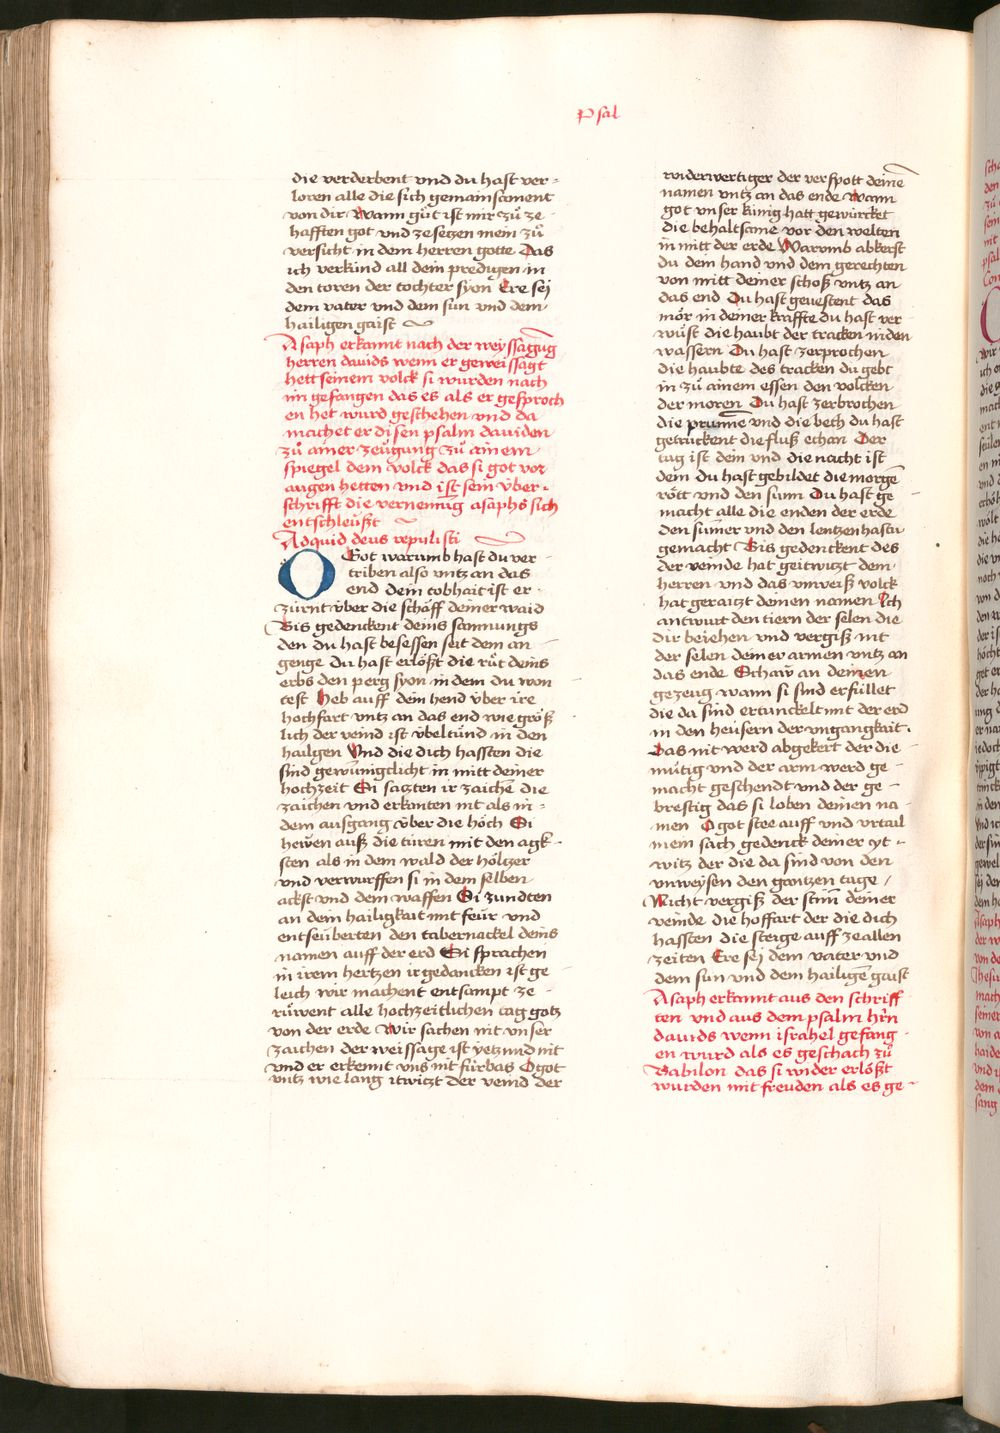 Psal
die verderbent vnd du hast ver-
loren alle die sich gemainsament
von dir Wann gůt ist mir zů ze
hafften got vnd ze setzen mein zů
versicht in dem herren gotte Das
ich verkünd all dein predigen in
den toren der tochter syon Ere sej
dem vater vnd dem sun vnd dem
hailigen gaist
Asaph erkannt nach der weyssagūg
herren dauids wenn er geweissagt
hett seinem volck si wurden nach
im gefangen das es als er gesproch
en het wurd geschehen vnd da
machet er disen psalm dauiden
zů ainer zeügung zů ainem
spiegel dem volck das si got vor
augen hetten vnd ist sein über-
schrifft die vernemūg asaphs sich
entschleüßt
Adquid deus repulisti
O Got warumb hast du ver
triben also vntz an das
end dein tobhait ist er
zürnt über die schäff deiner waid
Bis gedenckent deins samnungs
den du hast besessen seit dem an
genge Du hast erlößt die růt deins
erbs den perg syon in dem du won
test Heb auff dein hend über ire
hochfart vntz an das end wie größ
lich der veind ist übeltund in den
hailgen Vnd die dich hassten die
sind gewünigclicht in mitt deiner
hochzeit Si satzten ir zaichen die
zaichen vnd erkanten nit als in
dem ausgang über die höch Si
hewen auß die türen mit den agk-
sten als in dem wald der höltzer
vnd verwurffen si in dem selben
ackst vnd dem waffen Si zundten
an dein hailigkait mit feür vnd
entseüberten den tabernackel deins
namen auff der erd Si sprachen
in irem hertzen ir gedancken ist ge
leich wir machent entsampt ze
růwent alle hochzeitlichen tag gotz
von der erde Wir sachen nit vnser
zaichen der weissage ist yetzund nit
vnd er erkennt vns nit fürbas O got
vntz wie lang itwitzt der veind der
widerwertiger der verspott deinē
namen vntz an das ende Wann
got vnser künig hatt gewürcket
die behaltsame vor den welten
in mitt der erde Warumb abkerst
du dein hand vnd dem gerechten
von mitt deiner schoß vntz an
das end Du hast geuestent das
mör in deiner kraffte du hast ver
wüst die haubt der tracken in den
wassern Du hast zerprochen
die haubte des tracken du gebt
in zů ainem essen den volcken
der moren Du hast zerbrochen
die prunne vnd die bech du hast
getrückent die fluß echan Der
tag ist dein vnd die nacht ist
dein du hast gebildet die morgē
rött vnd den sunn Du hast ge
macht alle die enden der erde
den sumer vnd den lentzen hastu
gemacht Bis gedenckent des
der veinde hat geitwitzt dem
herren vnd das vnweiß volck
hat geraitzt deinen namen Ich
antwurt den tiern der selen die
dir beiehen vnd vergiß nit
der selen deiner armen vntz an
das ende Schaw an deinen
gezeug wann si sind erfüllet
die da sind ertunckelt mit der erd
in den heüsern der vngangkait
Das nit werd abgekert der die
mütig vnd der arm werd ge
macht geschendt vnd der ge
brestig das si loben deinen na
men O got stee auff vnd vrtail
mein sach gedenck deiner yt
witz der die da sind von den
vnweysen den gantzen tage
Nicht vergiß der stim̄ deiner
veinde die hoffart der die dich
hassten die steige auff ze allen
zeiten Ere sej dem vater vnd
dem sun vnd dem hailigē gaist
Asaph erkannt aus den schriff
ten vnd aus dem psalm hrn
dauids wenn israhel gefang
en wurd als es geschach zů
Babilon das si wider erlößt
wurden mit freuden als es ge-